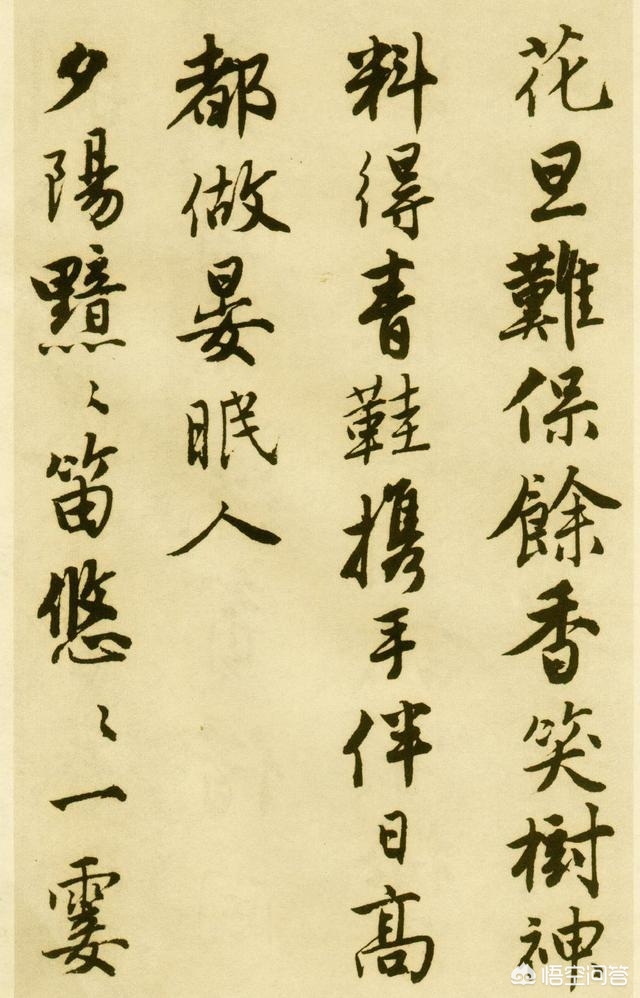 花旦難保餘香笑樹神
料得青鞋携手伴日高
都做晏眠人
夕陽黯〻笛悠〻一霎
悟空问答